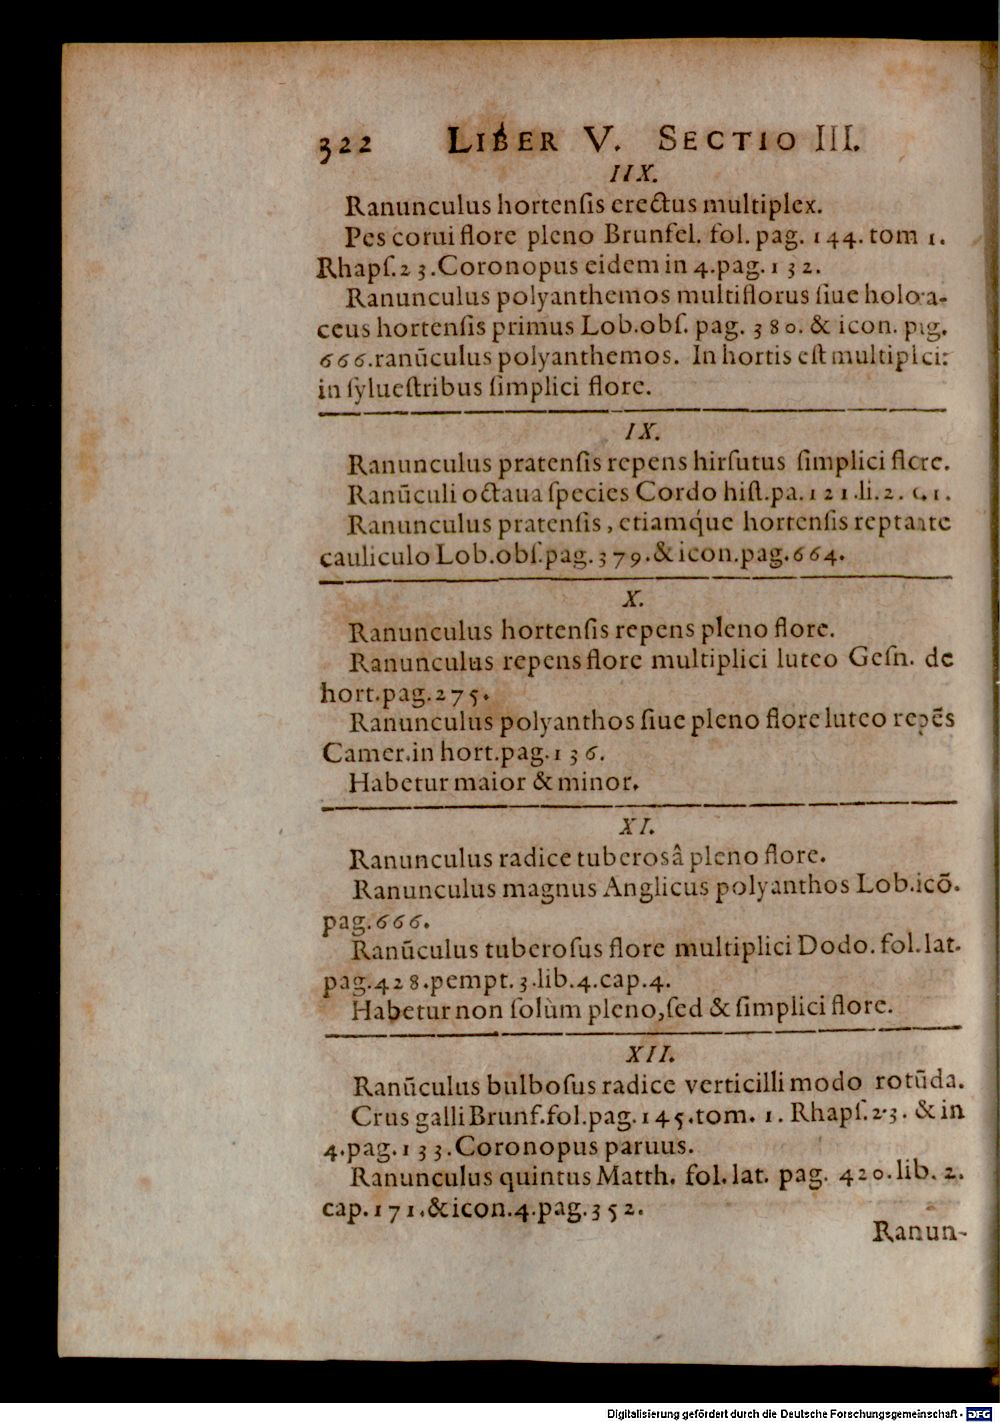 322 LIBER V. SECTIO III.
IIX.
Ranunculus hortenſis erectus multiplex.
Pes corui flore pleno Brunfel. fol. pag. 144. tom 1.
Rhapſ. 23. Coronopus eidem in 4. pag. 132.
Ranunculus polyanthemos multiflorus ſiue
ceus hortenſis primus Lob. obſ. pag. 380. & icon. pag.
666. ranũculus polyanthemos. In hortis eſt
in ſylueſtribus ſimplici flore.
IX.
Ranunculus pratenſis repens hirſutus ſimplici flore.
Ranũculi octaua ſpecies Cordo hiſt. pa. 121. li. 2.
Ranunculus pratenſis, etiamq́ue hortenſis reptante
cauliculo Lob. obſ. pag. 379. & icon. pag. 664.
X.
Ranunculus hortenſis repens pleno flore.
Ranunculus repens flore multiplici luteo Geſn. de
hort. pag. 275.
Ranunculus polyanthos ſiue pleno flore luteo repẽs
Camer. in hort. pag. 136.
Habetur maior & minor.
XI.
Ranunculus radice tuberosâ pleno flore.
Ranunculus magnus Anglicus polyanthos Lob. icõ.
pag. 666.
Ranũculus tuberoſus flore multiplici Dodo. fol. lat.
pag. 428. pempt. 3. lib. 4. cap. 4.
Habetur non ſolùm pleno, ſed & ſimplici flore.
XII.
Ranũculus bulboſus radice verticilli modo rotũda.
Crus galli Brunf. fol. pag. 145. tom. 1. Rhapſ. 23. & in
4. pag. 133. Coronopus paruus.
Ranunculus quintus Matth. fol. lat. pag. 420. lib. 2.
cap. 171. & icon. 4. pag. 352.
Ranun-
Digitalisierung gefördert durch die Deutsche Forschungsgemeinschaft - DFG